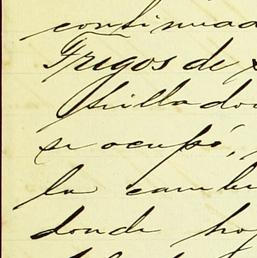 continuada
Trigos de
trillador
se ocupó,
la cambi
donde hoy